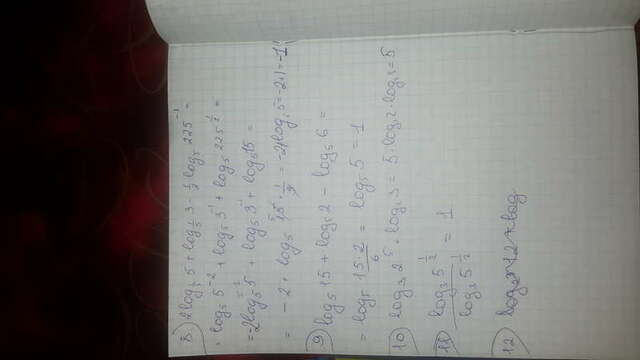 8) 2log_{1/5} 5 + log_{1/5} 3 - 1/2 log_5 225^{-1} =
= log_5 5^{-2} + log_5 3^{-1} + log_5 225^{1/2} =
= 2log_5 5 + log_5 3^{-1} + log_5 15 =
= -2 + log_5 15 · 1/3 = -2 + log_5 5 = -2+1 = -1
9) log_5 15 + log_5 2 - log_5 6 =
= log_5 15·2/6 = log_5 5 = 1
10) log_3 2^5 · log_2 3 = 5 · log_3 2 · log_2 3 = 5
11) log_3 5^{1/2} / log_3 5^{1/2} = 1
12)